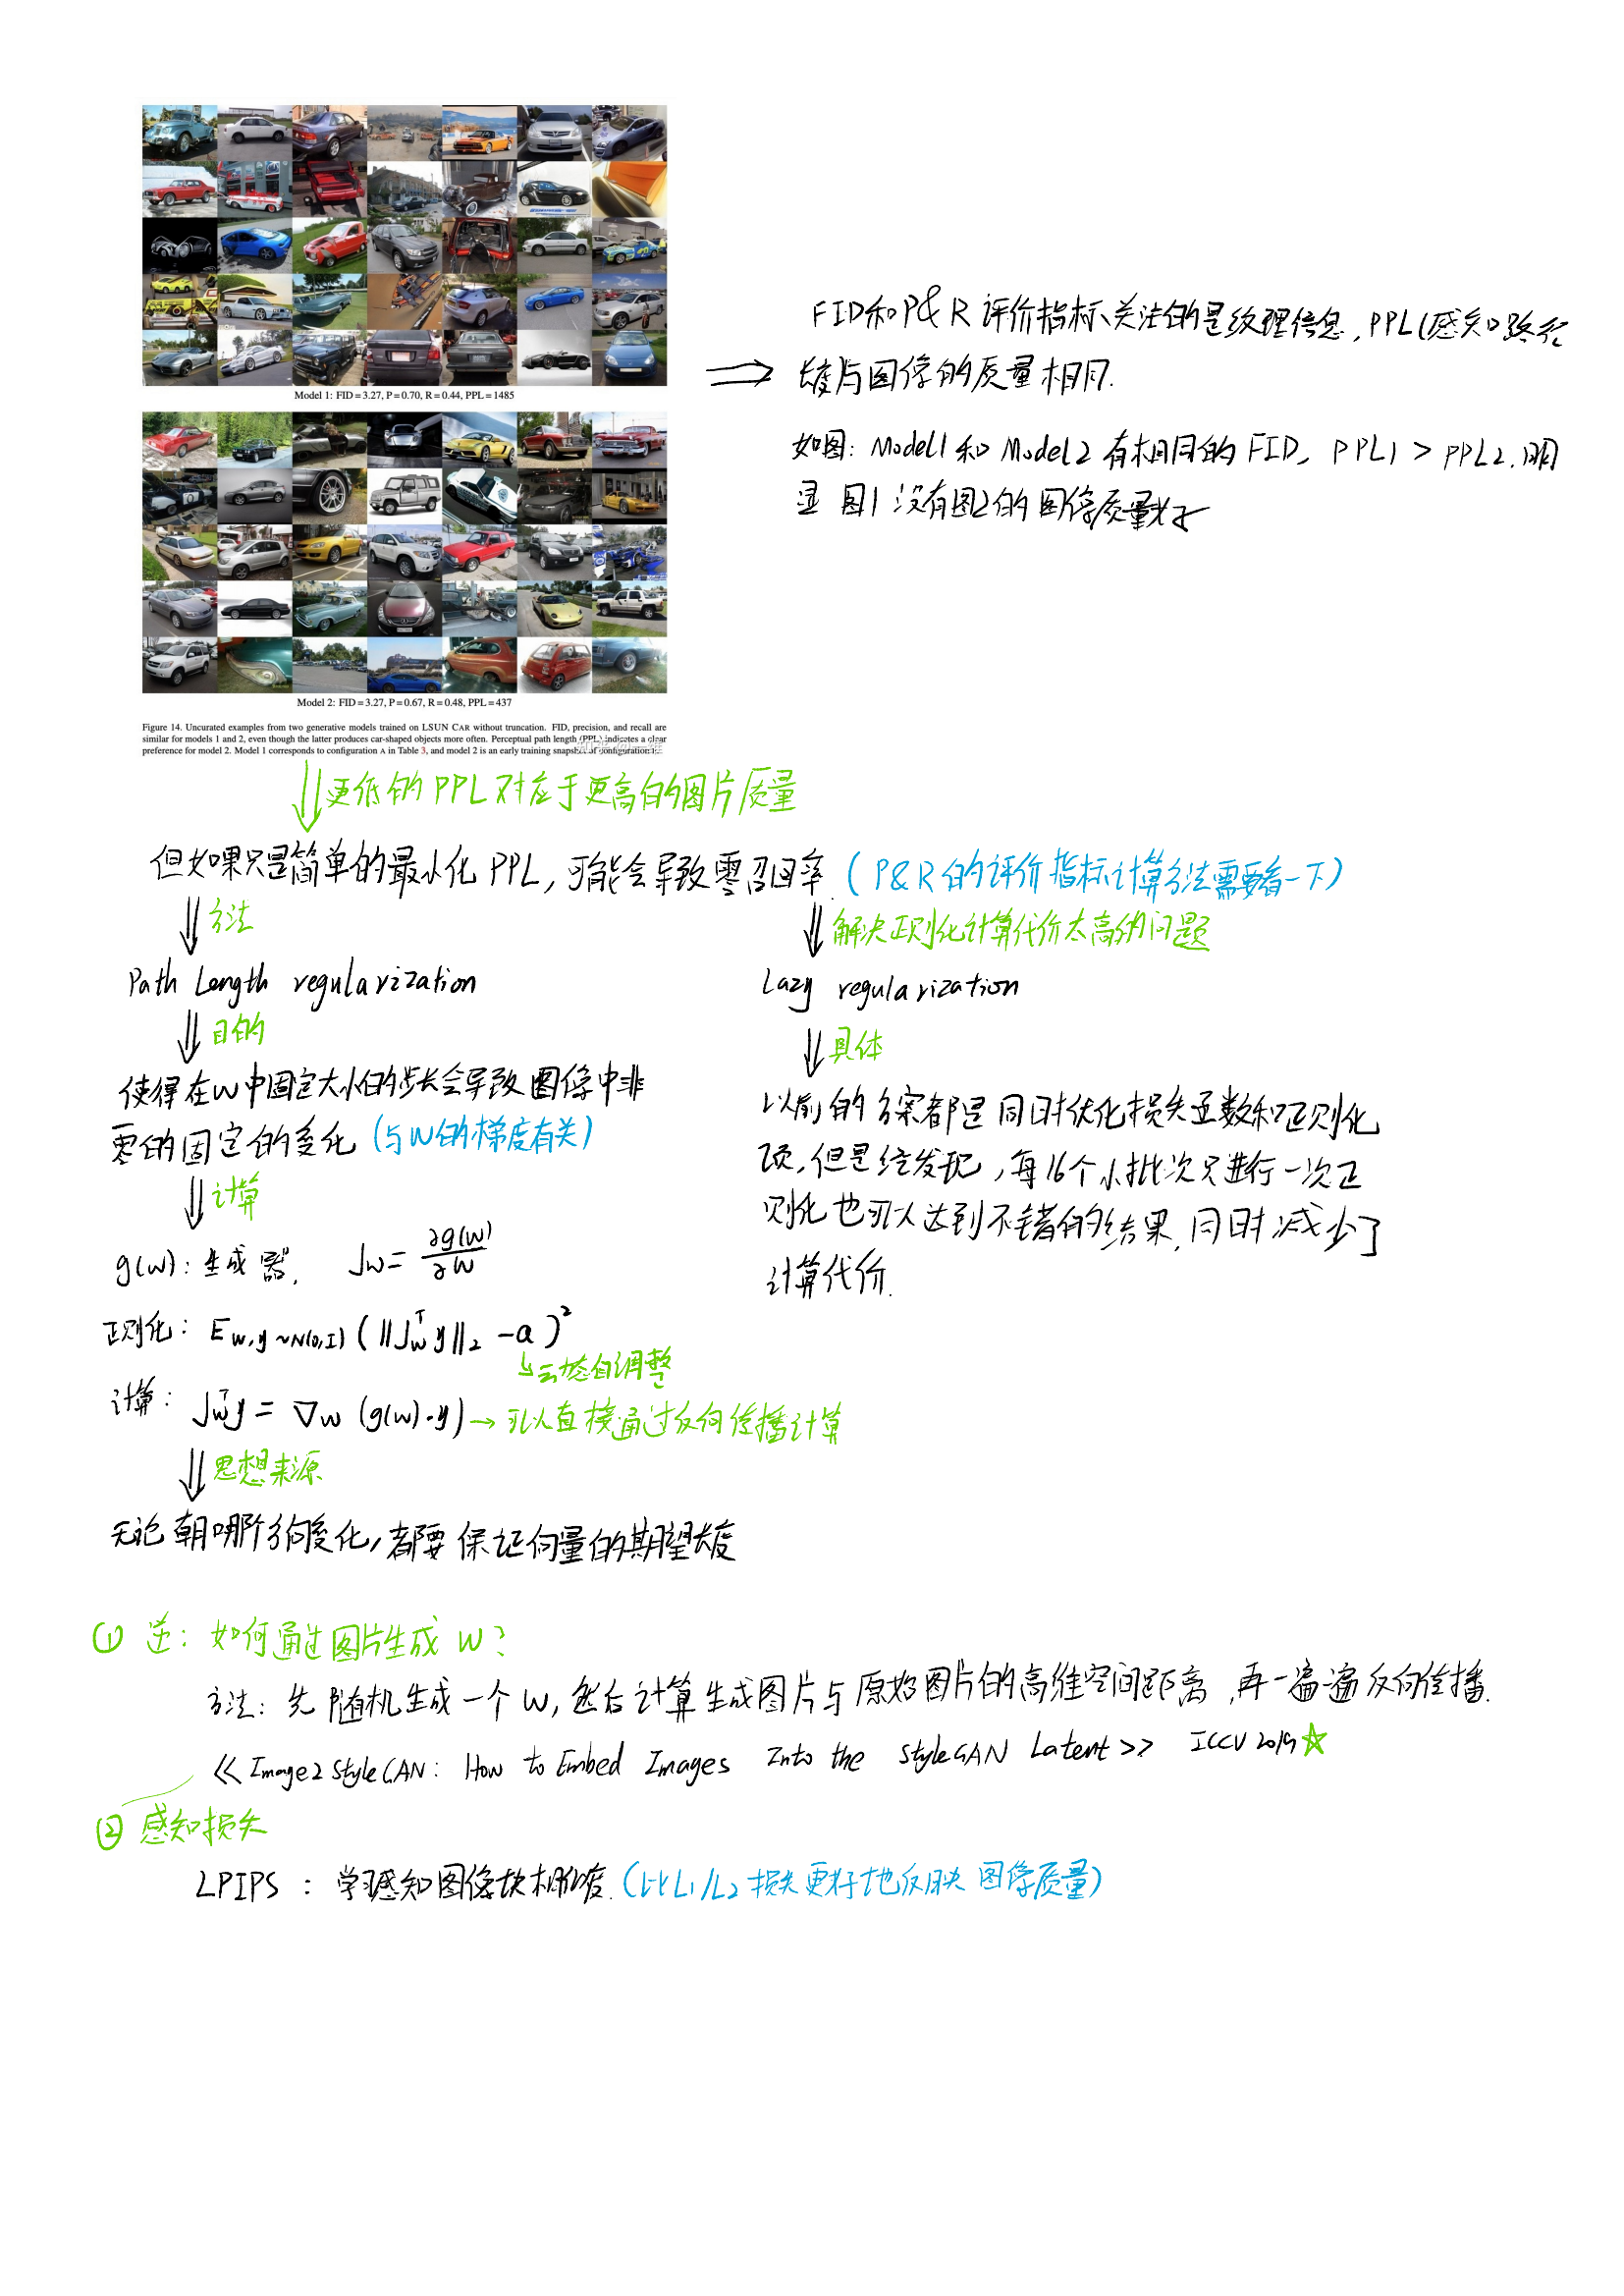 Model 1: FID = 3.27, P = 0.70, R = 0.44, PPL = 1485
FID和P&R 评价指标、关注的是纹理信息,PPL(感知路径
长度与图像的质量相同.
如图: Model1 和 Model2 有相同的 FID, PPL1 > PPL2.明
显 图1 没有图2的 图像质量好
Model 2: FID = 3.27, P = 0.67, R = 0.48, PPL = 437
Figure 14. Uncurated examples from two generative models trained on LSUN CAR without truncation. FID, precision, and recall are
similar for models 1 and 2, even though the latter produces car-shaped objects more often. Perceptual path length (PPL) indicates a clear
preference for model 2. Model 1 corresponds to configuration A in Table 3, and model 2 is an early training snapshot of configuration
更低的 PPL 对应于更高的图片质量
但如果只是简单的最小化 PPL, 可能会导致零召回率. ( P&R 的评价指标计算方法需要看一下)
方法
Path Length regularization
目的
使得在W中固定大小的步长会导致图像中非
零的固定的变化 (与W的梯度有关)
计算
g(w): 生成器, Jw = ∂g(w)/∂w
正则化: E w,y~N(0,I) (||J_w^T y||_2 - a)^2
动态自调整
计算: J_w^T y = ∇w (g(w)·y) → 可以直接通过反向传播计算
思想来源
无论朝哪个方向变化, 都要保证向量的期望长度
解决正则化计算代价太高的问题
Lazy regularization
具体
以前的方案都是同时优化损失函数和正则化
项, 但是经发现, 每16个小批次只进行一次正
则化也可以达到不错的结果, 同时减少了
计算代价.
① 逆: 如何通过图片生成 W?
方法: 先随机生成一个W, 然后计算生成图片与原始图片的高维空间距离, 再一遍遍反向传播.
<<Image2StyleGAN: How to Embed Images Into the StyleGAN Latent>> ICCV 2019
② 感知损失
LPIPS : 学习感知图像块相似度. (比L1/L2 损失更好地反映图像质量)